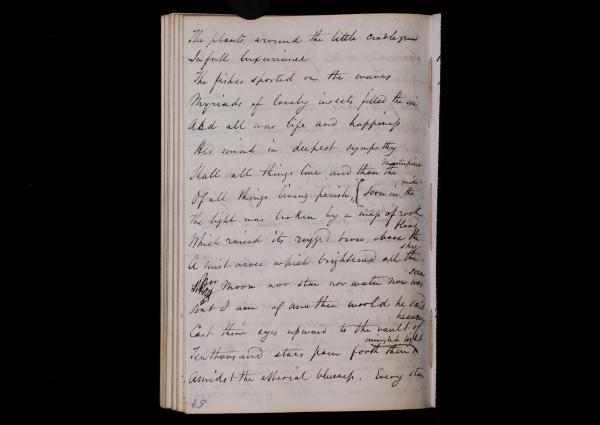 The plants around the little cradle grew
In full luxuriance
The fishes sported on the waves
Myriads of lovely insects filled the air
And all was life and happiness
His mind in deepest sympathy
Shall all things live, and thou the masterpiece
Of all things living perish, Soon in the midst
The light was broken by a map of rock
Which raised its rugged brow above the flood
A mist arose which brightened all the sky
Nor moon nor star nor water now was seen
But I am of another world he said
Cast thine eyes upward to the vault of heaven
Ten thousand stars pour forth their mingled light
Amidst the etherial blueness. Every star
65